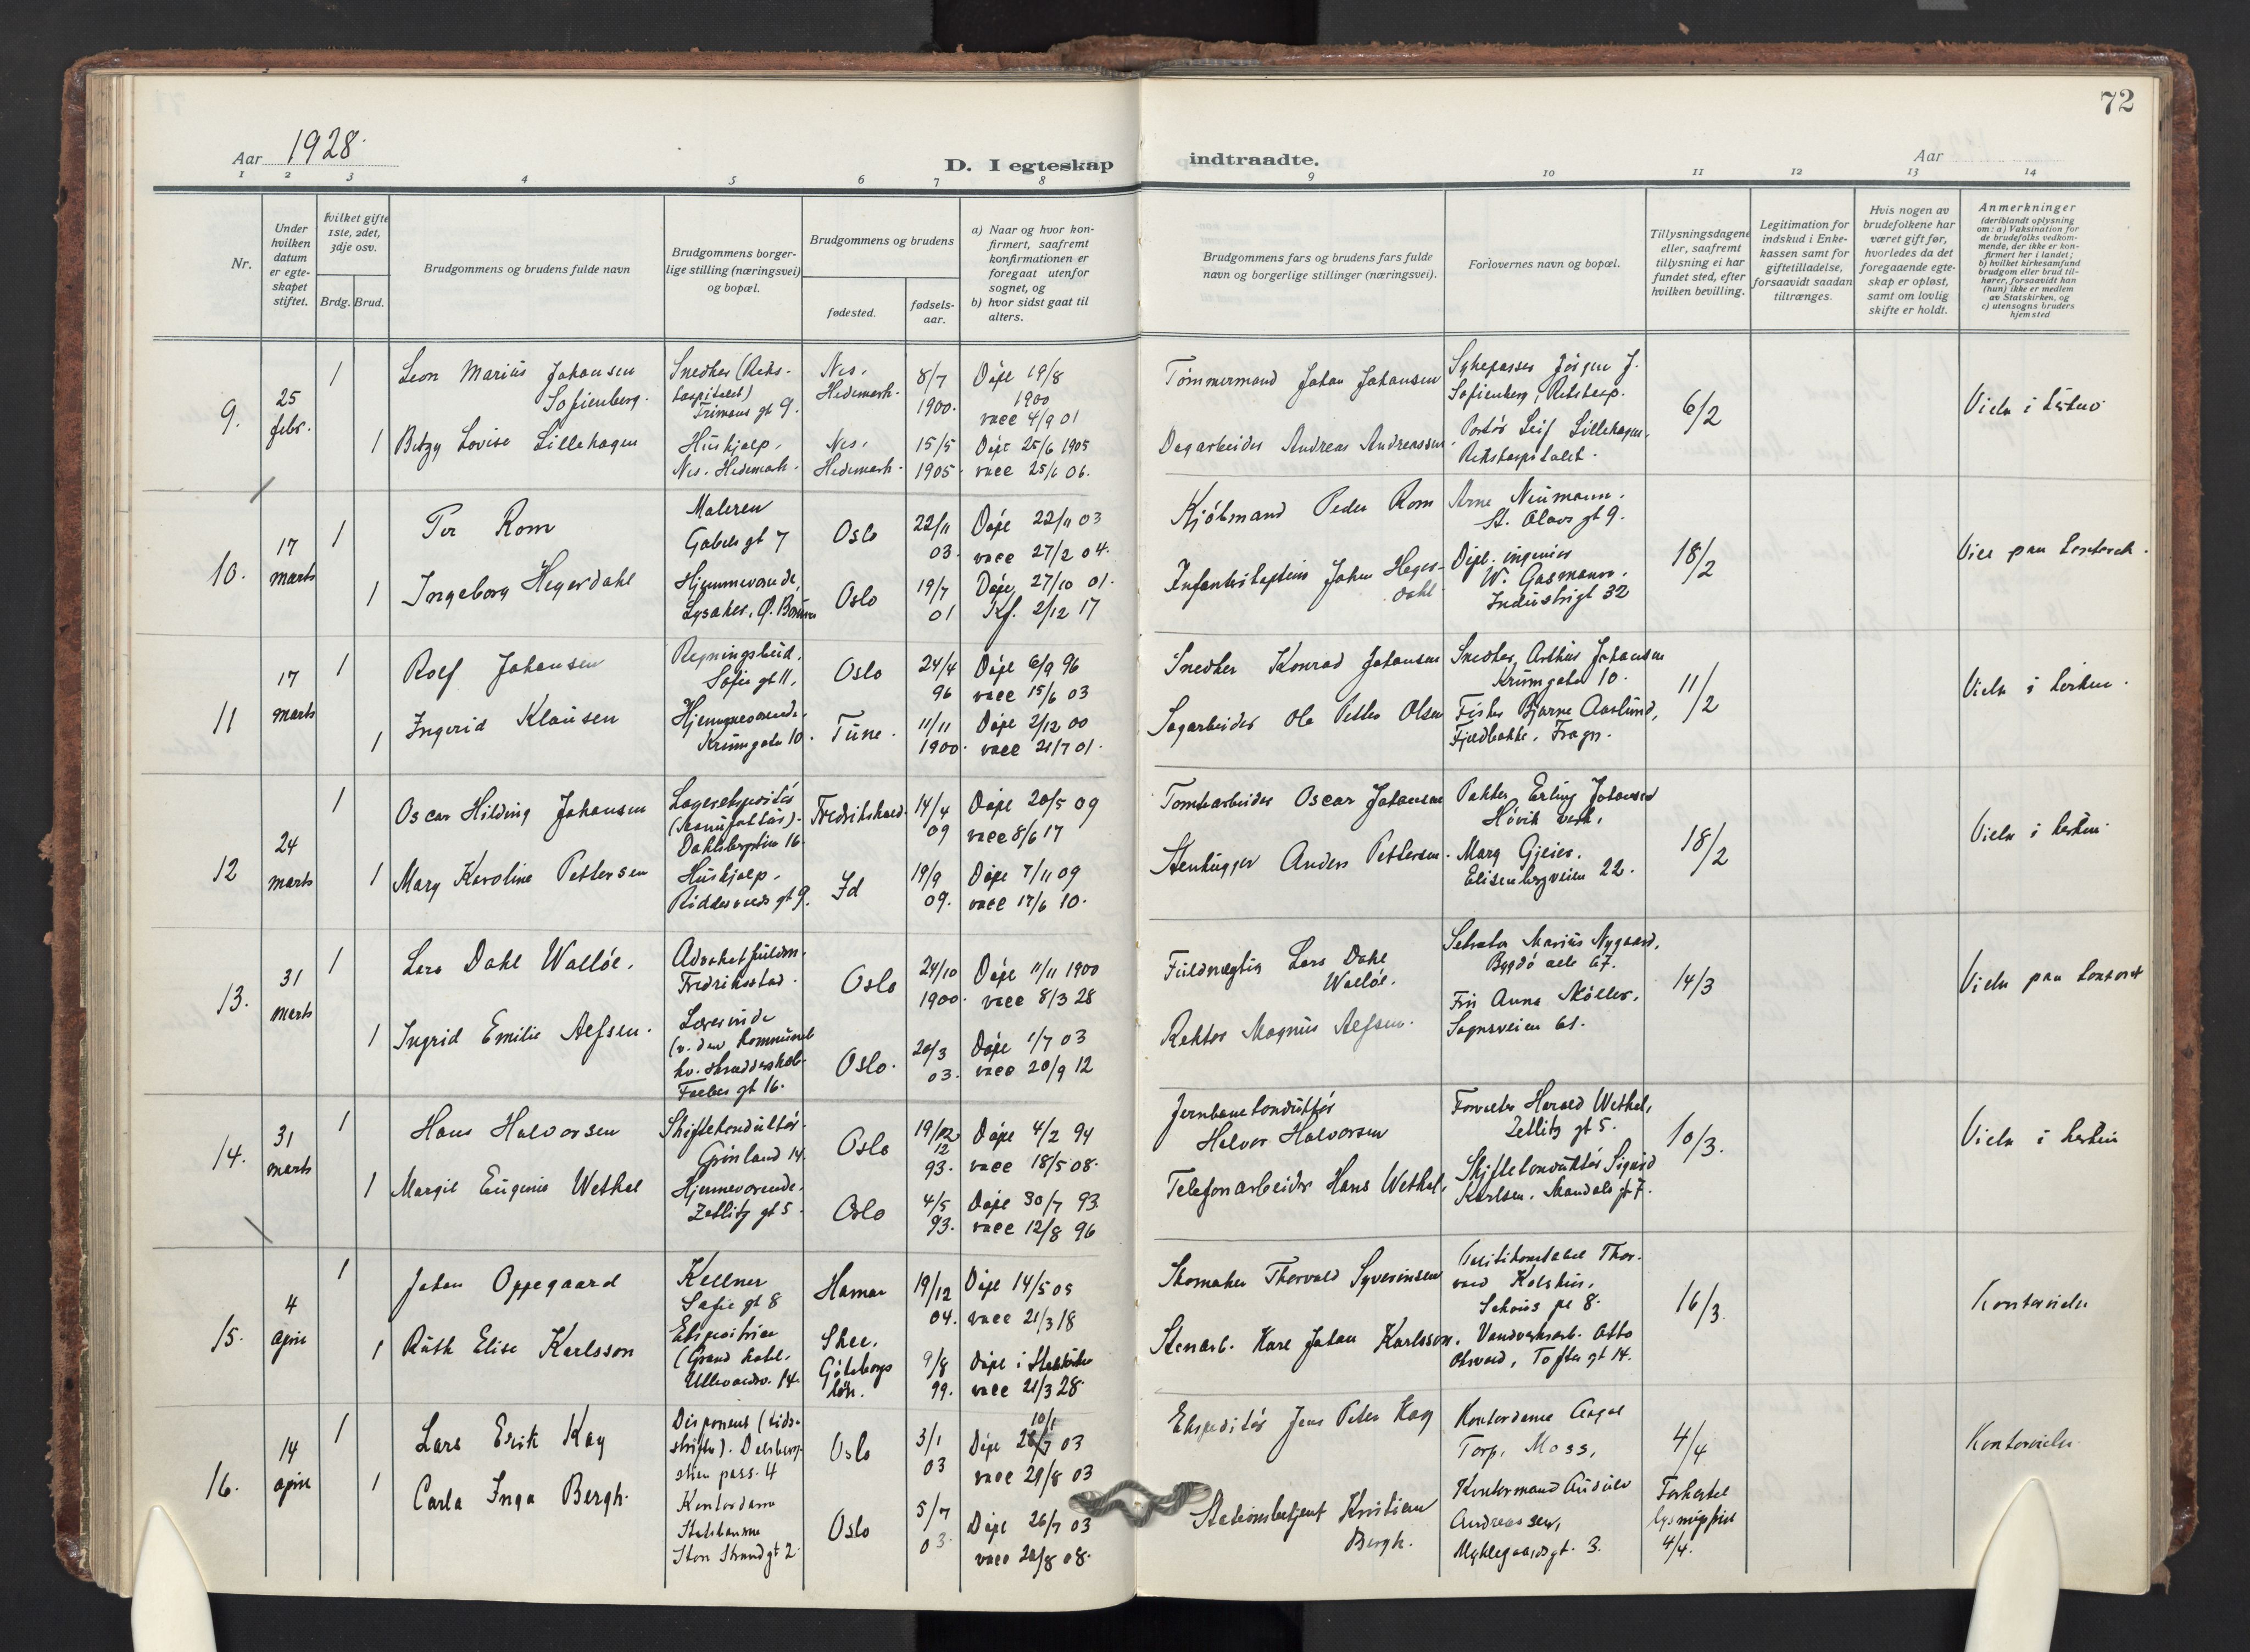 72
Aar 1928.
D. I egteskap indtraadte.
Aar
1 2 3 4 5 6 7 8 9 10 11 12 13 14
Nr.
Under
hvilken
datum
er egte-
skapet
stiftet.
hvilket gifte
1ste, 2det,
3dje osv.
Brdg. Brud.
Brudgommens og brudens fulde navn
Brudgommens borger-
lige stilling (næringsvei)
og bopæl.
Brudgommens og brudens
fødested.
fødsels-
aar.
a) Naar og hvor kon-
firmert, saafremt
konfirmationen er
foregaat utenfor
sognet, og
b) hvor sidst gaat til
alters.
Brudgommens fars og brudens fars fulde
navn og borgerlige stillinger (næringsvei).
Forlovernes navn og bopæl.
Tillysningsdagene
eller, saafremt
tillysning ei har
fundet sted, efter
hvilken bevilling.
Legitimation for
indskud i Enke-
kassen samt for
giftetilladelse,
forsaavidt saadan
tiltrænges.
Hvis nogen av
brudefolkene har
været gift før,
hvorledes da det
foregaaende egte-
skap er opløst,
samt om lovlig
skifte er holdt.
Anmerkninger
(deriblandt oplysning
om: a) Vaksination for
de brudefolks vedkom-
mende, der ikke er kon-
firmert her i landet;
b) hvilket kirkesamfund
brudgom eller brud til-
hører, forsaavidt han
(hun) ikke er medlem
av Statskirken, og
c) utensogns bruders
hjemsted
9.
25
febr.
1
Leon Marius Johansen
Sofienberg.
Snedker (Riks-
hospitalet)
gt 9.
Nes,
Hedemark.
8/7
1900.
Døpt 19/8
1900
vacc 4/9 01
Tømmermand Johan Johansen
Sykepasser Jørgen J.
Sofienberg, Rikshosp.
6/2
1
Betzy Lovise Lillehagen
Hushjelp,
Nes. Hedemark.
Nes,
Hedemark.
15/5
1905.
Døpt 25/6 1905
vacc 25/6 06.
Dagarbeider Andreas Andreassen
Portør Leif Lillehagen,
Rikshospitalet.
10.
17
marts
1
Per Rom
Maleren
Gabels gt 7
Oslo
22/11
03.
Døpt 22/11 03
vacc 27/2 04.
Kjøbmand Peder Rom
Arne Neumann.
St. Olavs gt 9.
18/2
1
Ingeborg Hegerdahl
Hjemmeværende,
Lysaker, Ø. Bærum
Oslo
19/7
01
Døpt 27/10 01.
Kf. 2/12 17
Infanterikaptein John Heger-
dahl.
Dipl. ingeniør
W. Gasmann.
Industrigt 32
11
17
marts
1
Rolf Johansen
Sofie gt 11,
Oslo
24/4
96
Døpt 6/9 96
vacc 15/6 03
Snedker Konrad Johansen
Snedker Arthur Johansen
Krumgaten 10.
11/2
Viełse i kirken.
1
Ingerid Klausen
Hjemmeværende,
Krumgaten 10.
Tune.
11/11
1900.
Døpt 2/12 00
vacc 21/7 01.
Sagarbeider Ole Petter Olsen
Fisker Bjarne Aaslund,
Fjeldbakke, Frogn.
12
24
marts
1
Oscar Hilding Johansen
Lagerekspeditør
(Manufaktur).
Dahlsbergstien 16.
Fredrikshald.
14/4
09
Døpt 20/5 09
vacc 8/6 17
Tomtearbeider Oscar Johansen
Pakker Erling Johansen
Høvik verk,
18/2
Vielse i kirken.
1
Mary Karoline Pettersen
Hushjelp.
Riddervolds gt 9.
Id
19/9
09.
Døpt 7/11 09
vacc 17/6 10.
Stenhugger Anders Pettersen.
Mary Gjeier.
Elisenbergveien 22.
13.
31
marts
1
Lars Dahl Walløe.
Advokatfuldm.
Fredriksstad.
Oslo
24/10
1900.
Døpt 11/11 1900
vacc 8/3 28
Fuldmægtig Lars Dahl
Walløe.
Sekretær Marius Nygaard,
Bygdø alle 67.
14/3
Vielse paa kontoret
1
Ingrid Emilie Alfsen.
Lærerinde
(v. den kommunale
kv. skrædderskole
Falbes gt 16.
Oslo.
20/3
03.
Døpt 1/7 03
vacc 20/9 12
Rektor Magnus Alfsen.
Fru Anna Møller,
Sognsveien 61.
14.
31
marts
1
Hans Halvorsen
Skiftekonduktør.
Grønland 14.
Oslo
19/12
12
93.
Døpt 4/2 94
vacc 18/5 08.
Jernbanekonduktør
Halvor Halvorsen
Forvalter Harald Wethal,
Zetlitz gt 5.
10/3.
Vielse i kirken
1
Margit Eugenie Wethal
Hjemmeværende.
Zetlitz gt 5.
Oslo
4/5
93.
Døpt 30/7 93.
vacc 12/8 96
Telefonarbeider Hans Wethal.
Skiftekonduktør Sigurd
Karlsen. Mandals gt 7.
15.
4
april
1
Johan Oppegaard
Kellner
Sofie gt 8
Hamar
19/12
04.
Døpt 14/5 05
vacc 21/3 18
Skomaker Thorvald Syverinsen
Politikonstabel Thor-
vald
Schous pl 8.
16/3.
Kontorvielse
1
Ruth Elise Karlsson
Ekspeditrice
(Grand hotel.
Ullevaalsv. 14.
Skee.
Göteborgs
län.
9/8
99.
Døpt i
vacc 21/3 28.
Stenarb. Karl Johan Karlsson.
Vandverksarb. Otto
Olsvold, Toftes gt 14.
16.
14
april
1
Lars Erik Kay
Disponent (tids-
skrifter). Dælsberg-
stien pass. 4
Oslo
3/1
03
10/1
Døpt 26/7 03
vacc 29/8 03
Ekspeditør Jens Peter Kay
Kontordame Aagot
Torp, Moss,
4/4
Kontorvielse.
1
Carla Inga Bergh.
Kontordame
Statsbanerne
Store Strandgt 2.
Oslo
5/7
03.
Døpt 26/7 03
vacc 20/8 08.
Stationsbetjent Kristian
Bergh.
Kontormand Audulv
Andreassen,
Myklegaardsgt. 3.
Forkortet
lysningsfrist
4/4.